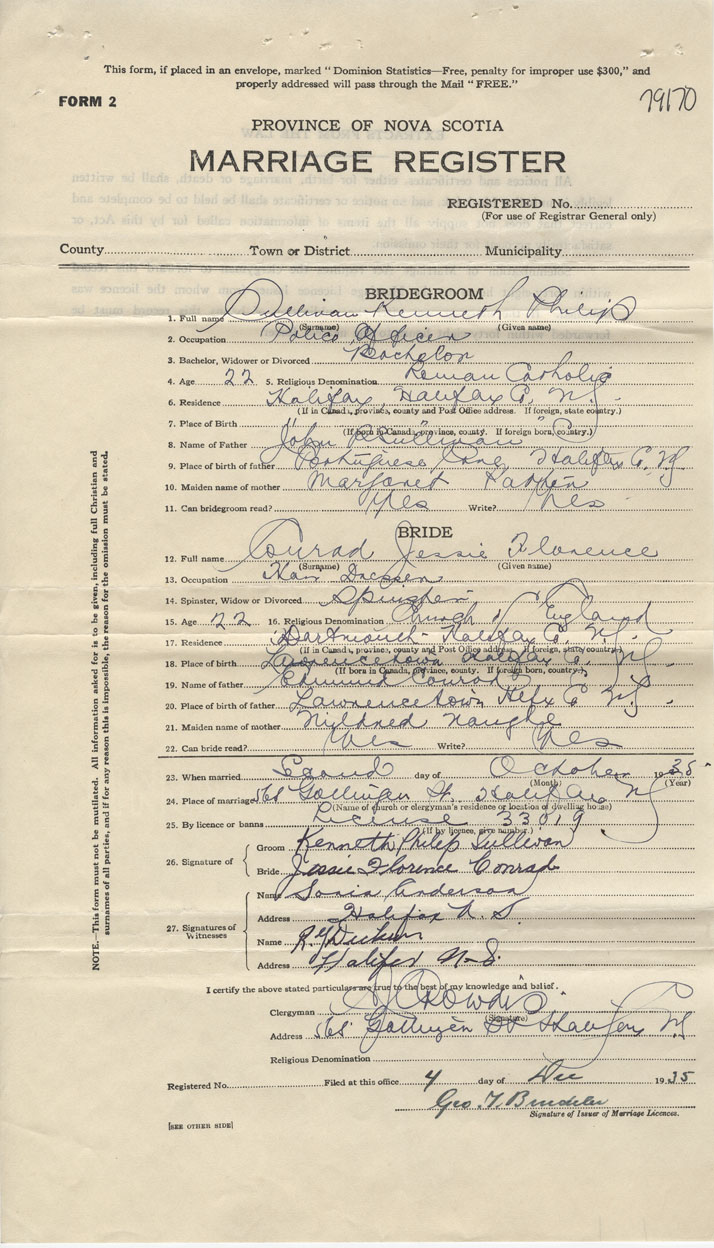 This form, if placed in an envelope, marked "Dominion Statistics—Free, penalty for improper use $300," and
properly addressed will pass through the Mail "FREE."
FORM 2
79170
PROVINCE OF NOVA SCOTIA
MARRIAGE REGISTER
REGISTERED No.
(For use of Registrar General only)
County Town or District Municipality
BRIDEGROOM
1. Full name Sullivan Kenneth Philip
(Surname) (Given name)
2. Occupation Police Officer
3. Bachelor, Widower or Divorced Bachelor
4. Age 22 5. Religious Denomination Roman Catholic
6. Residence Halifax, Halifax Co. N.S.
(If in Canada, province, county and Post Office address. If foreign, state country.)
7. Place of Birth " " "
(If born in Canada, province, county. If foreign born, country.)
8. Name of Father John Sullivan
9. Place of birth of father Portuguese Cove, Halifax Co. N.S.
10. Maiden name of mother Margaret
11. Can bridegroom read? Yes Write? Yes
BRIDE
12. Full name Conrad Jessie Florence
(Surname) (Given name)
13. Occupation Hair Dresser
14. Spinster, Widow or Divorced Spinster
15. Age 22 16. Religious Denomination Church of England
17. Residence Dartmouth - Halifax Co. N.S.
(If in Canada, province, county and Post Office address. If foreign, state country.)
18. Place of birth Lawrencetown Halifax Co. N.S.
(If born in Canada, province, county. If foreign born, country.)
19. Name of father Edmund Conrad
20. Place of birth of father Lawrencetown Hfx Co N.S.
21. Maiden name of mother Mildred Naugle
22. Can bride read? Yes Write? Yes
23. When married Second day of October 1935
(Month) (Year)
24. Place of marriage 68 Gottingen St. Halifax N.S.
(Name of church or clergyman's residence or location of dwelling house)
25. By licence or banns License 33019
(If by licence, give number.)
26. Signature of
Groom Kenneth Philip Sullivan
Bride Jessie Florence Conrad
27. Signatures of Witnesses
Name Anderson
Address Halifax N.S.
Name
Address Halifax N-S.
I certify the above stated particulars are true to the best of my knowledge and belief.
Clergyman
(Signature)
Address 68 Gottingen St Halifax N.S.
Religious Denomination
Registered No. Filed at this office 4 day of Dec 1935
Geo. T.
Signature of Issuer of Marriage Licences.
[SEE OTHER SIDE]
NOTE.—This form must not be mutilated. All information asked for is to be given, including full Christian and
surnames of all parties, and if for any reason this is impossible, the reason for the omission must be stated.